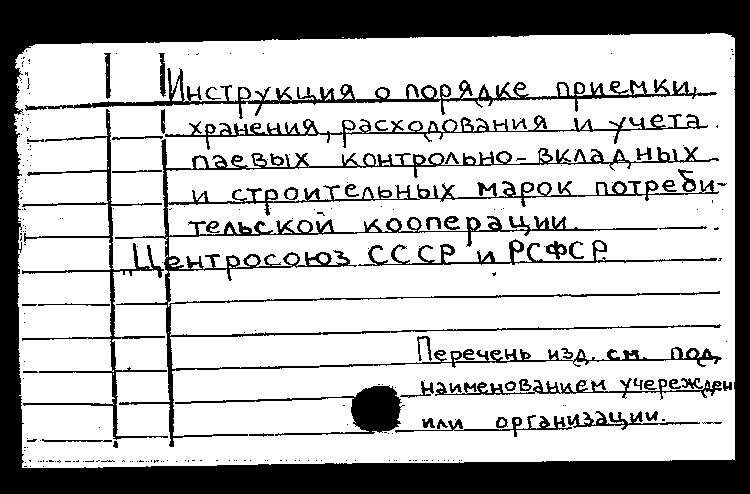 Инструкция о порядке приемки,
хранения, расходования и учета
паевых контрольно-вкладных
и строительных марок потреби-
тельской кооперации.
Центросоюз СССР и РСФСР
Перечень изд. см. под
наименованием учережден
или организации.